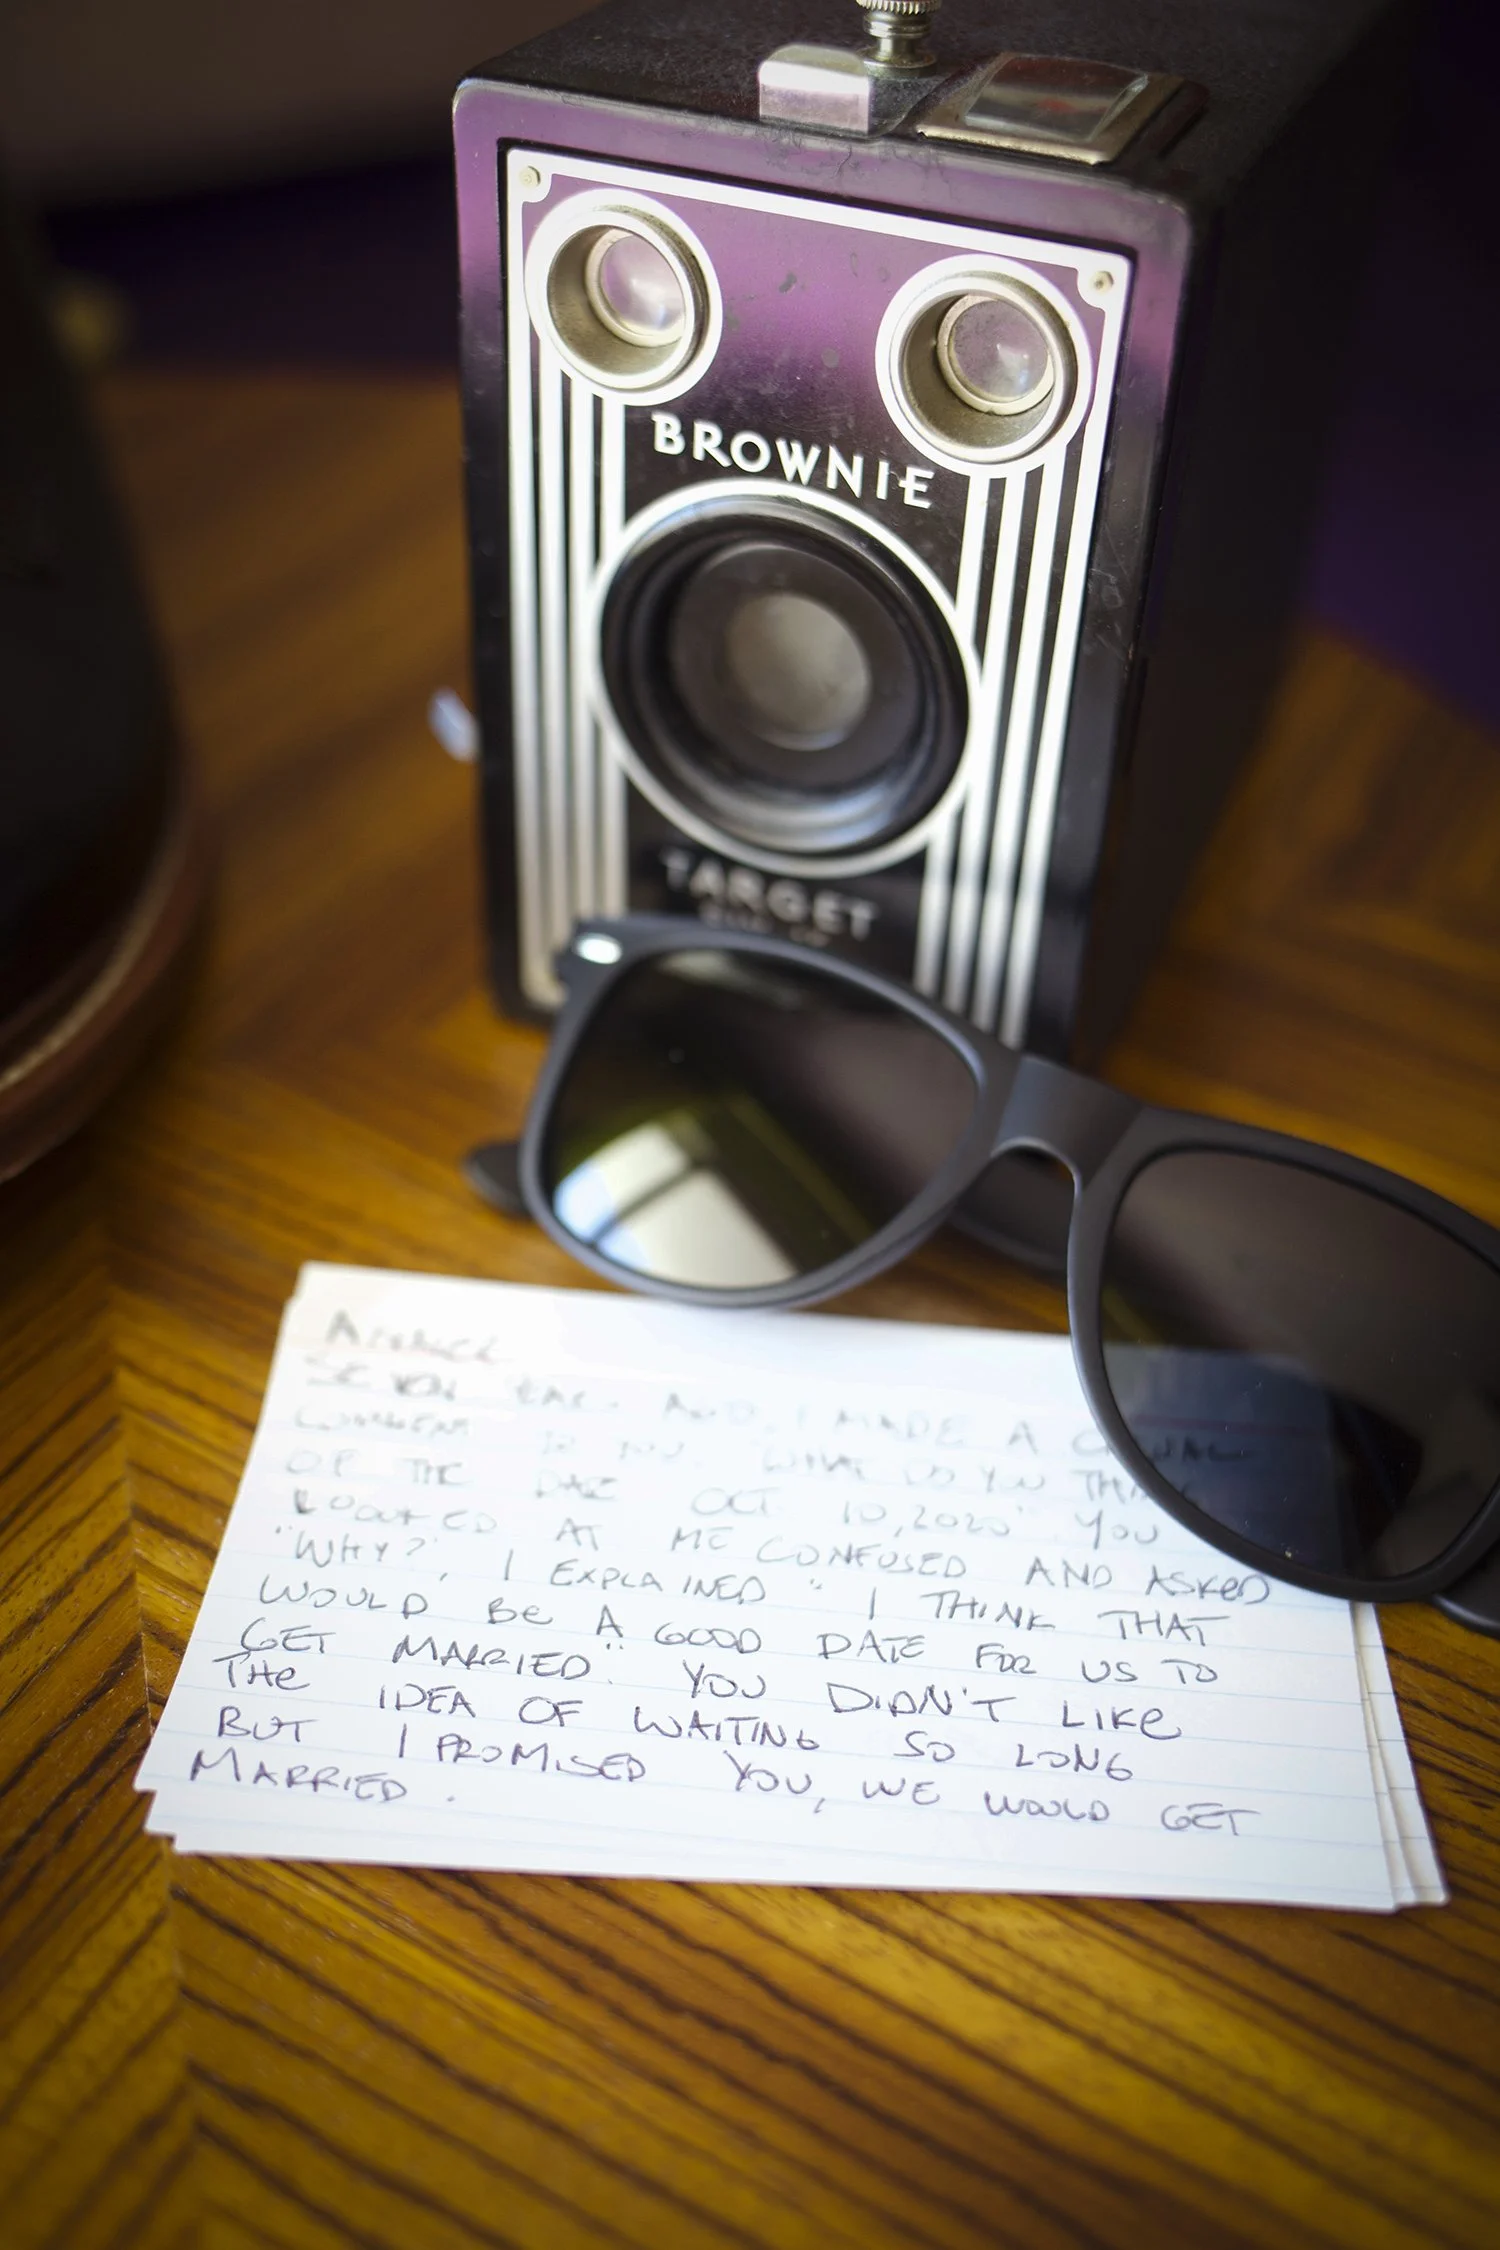 BROWNIE
TARGET
SEVEN AGO, I MADE A CASUAL
TO YOU. "WHAT DO YOU THINK
OF THE DATE OCT 10, 2020" YOU
LOOKED AT ME CONFUSED AND ASKED
"WHY?", I EXPLAINED "I THINK THAT
WOULD BE A GOOD DATE FOR US TO
GET MARRIED". YOU DIDN'T LIKE
THE IDEA OF WAITING SO LONG
BUT I PROMISED YOU, WE WOULD GET
MARRIED.